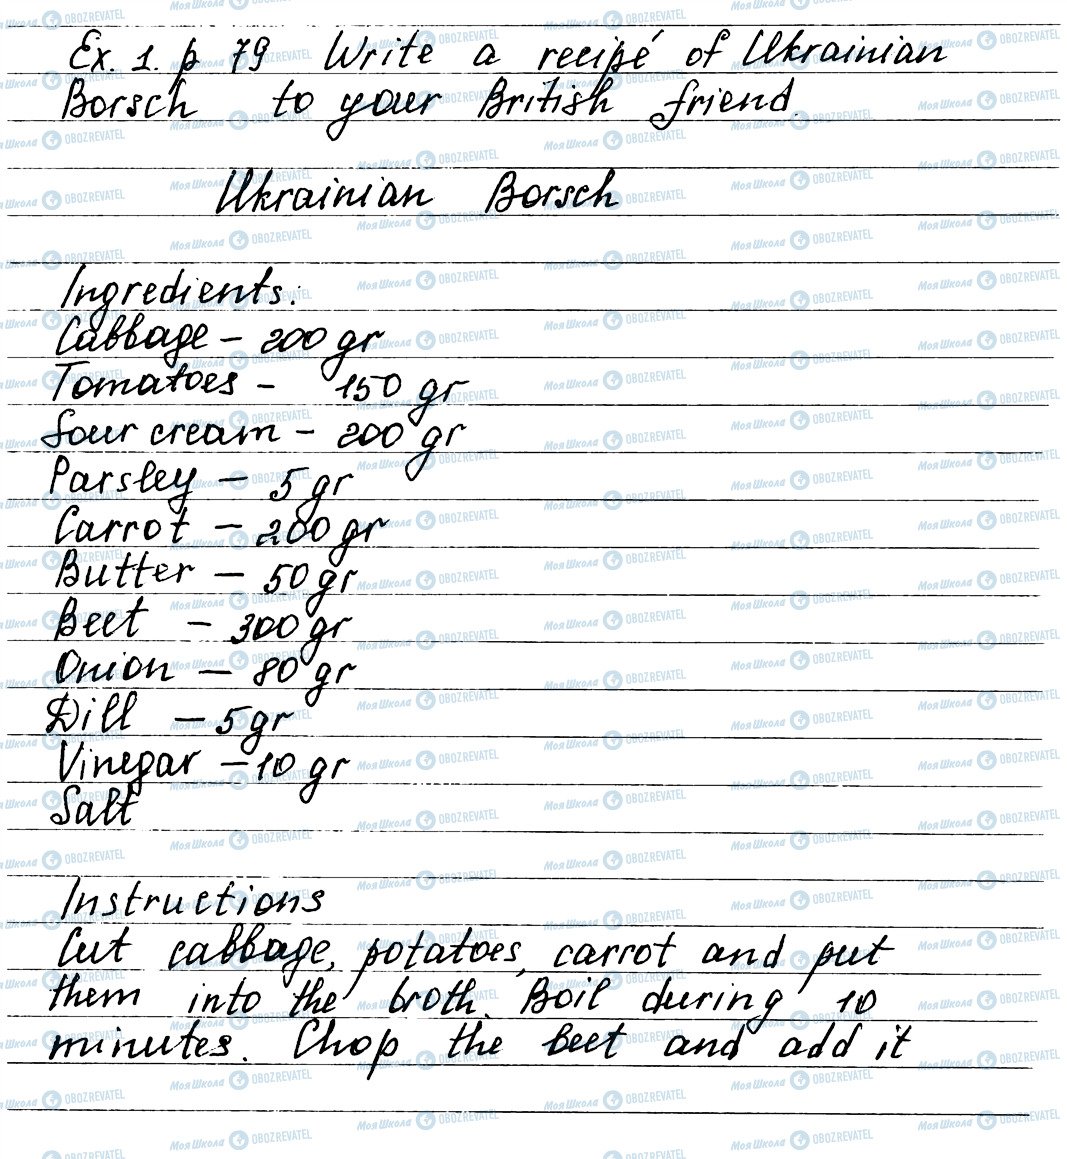 Ex. 1. p 79 Write a recipé of Ukrainian
Borsch to your British friend.
Ukrainian Borsch
Ingredients:
Cabbage – 200 gr
Tomatoes – 150 gr
Sour cream – 200 gr
Parsley – 5 gr
Carrot – 200 gr
Butter – 50 gr
Beet – 300 gr
Onion – 80 gr
Dill – 5 gr
Vinegar – 10 gr
Salt
Instructions
Cut cabbage, potatoes, carrot and put
them into the broth. Boil during 10
minutes. Chop the beet and add it
Моя Школа OBOZREVATEL